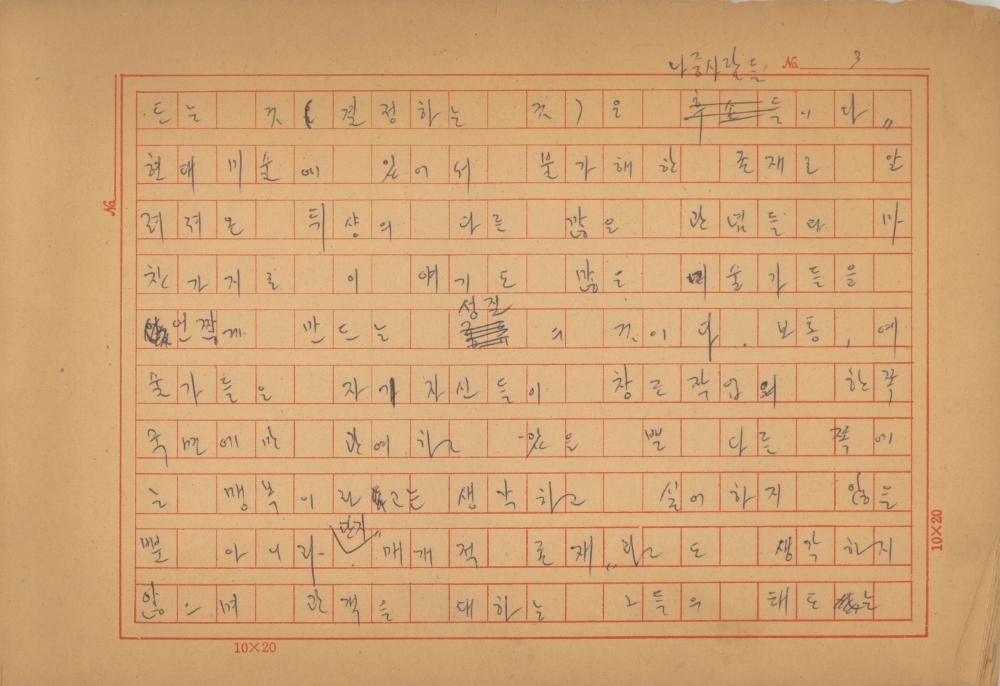 나중사람들 No. 3
드는 것(결정하는 것)은 후손들이다"
현대 미술에 있어서 불가해한 존재로 알
려져온 뒤샹의 다른 많은 관념들과 마
찬가지로 이 얘기도 많은 미술가들을
언짢게 만드는 성질의 것이다. 보통, 예
술가들은 자기 자신들이 창조작업의 한쪽
국면에만 관여하고 있을 뿐 다른 쪽에
눈 맹목이라고는 생각하고 싶어하지 않을
뿐 아니라 단지 "매개적 존재"라고도 생각하지
않으며 관객을 대하는 그들의 태도는
No.
10×20
10×20